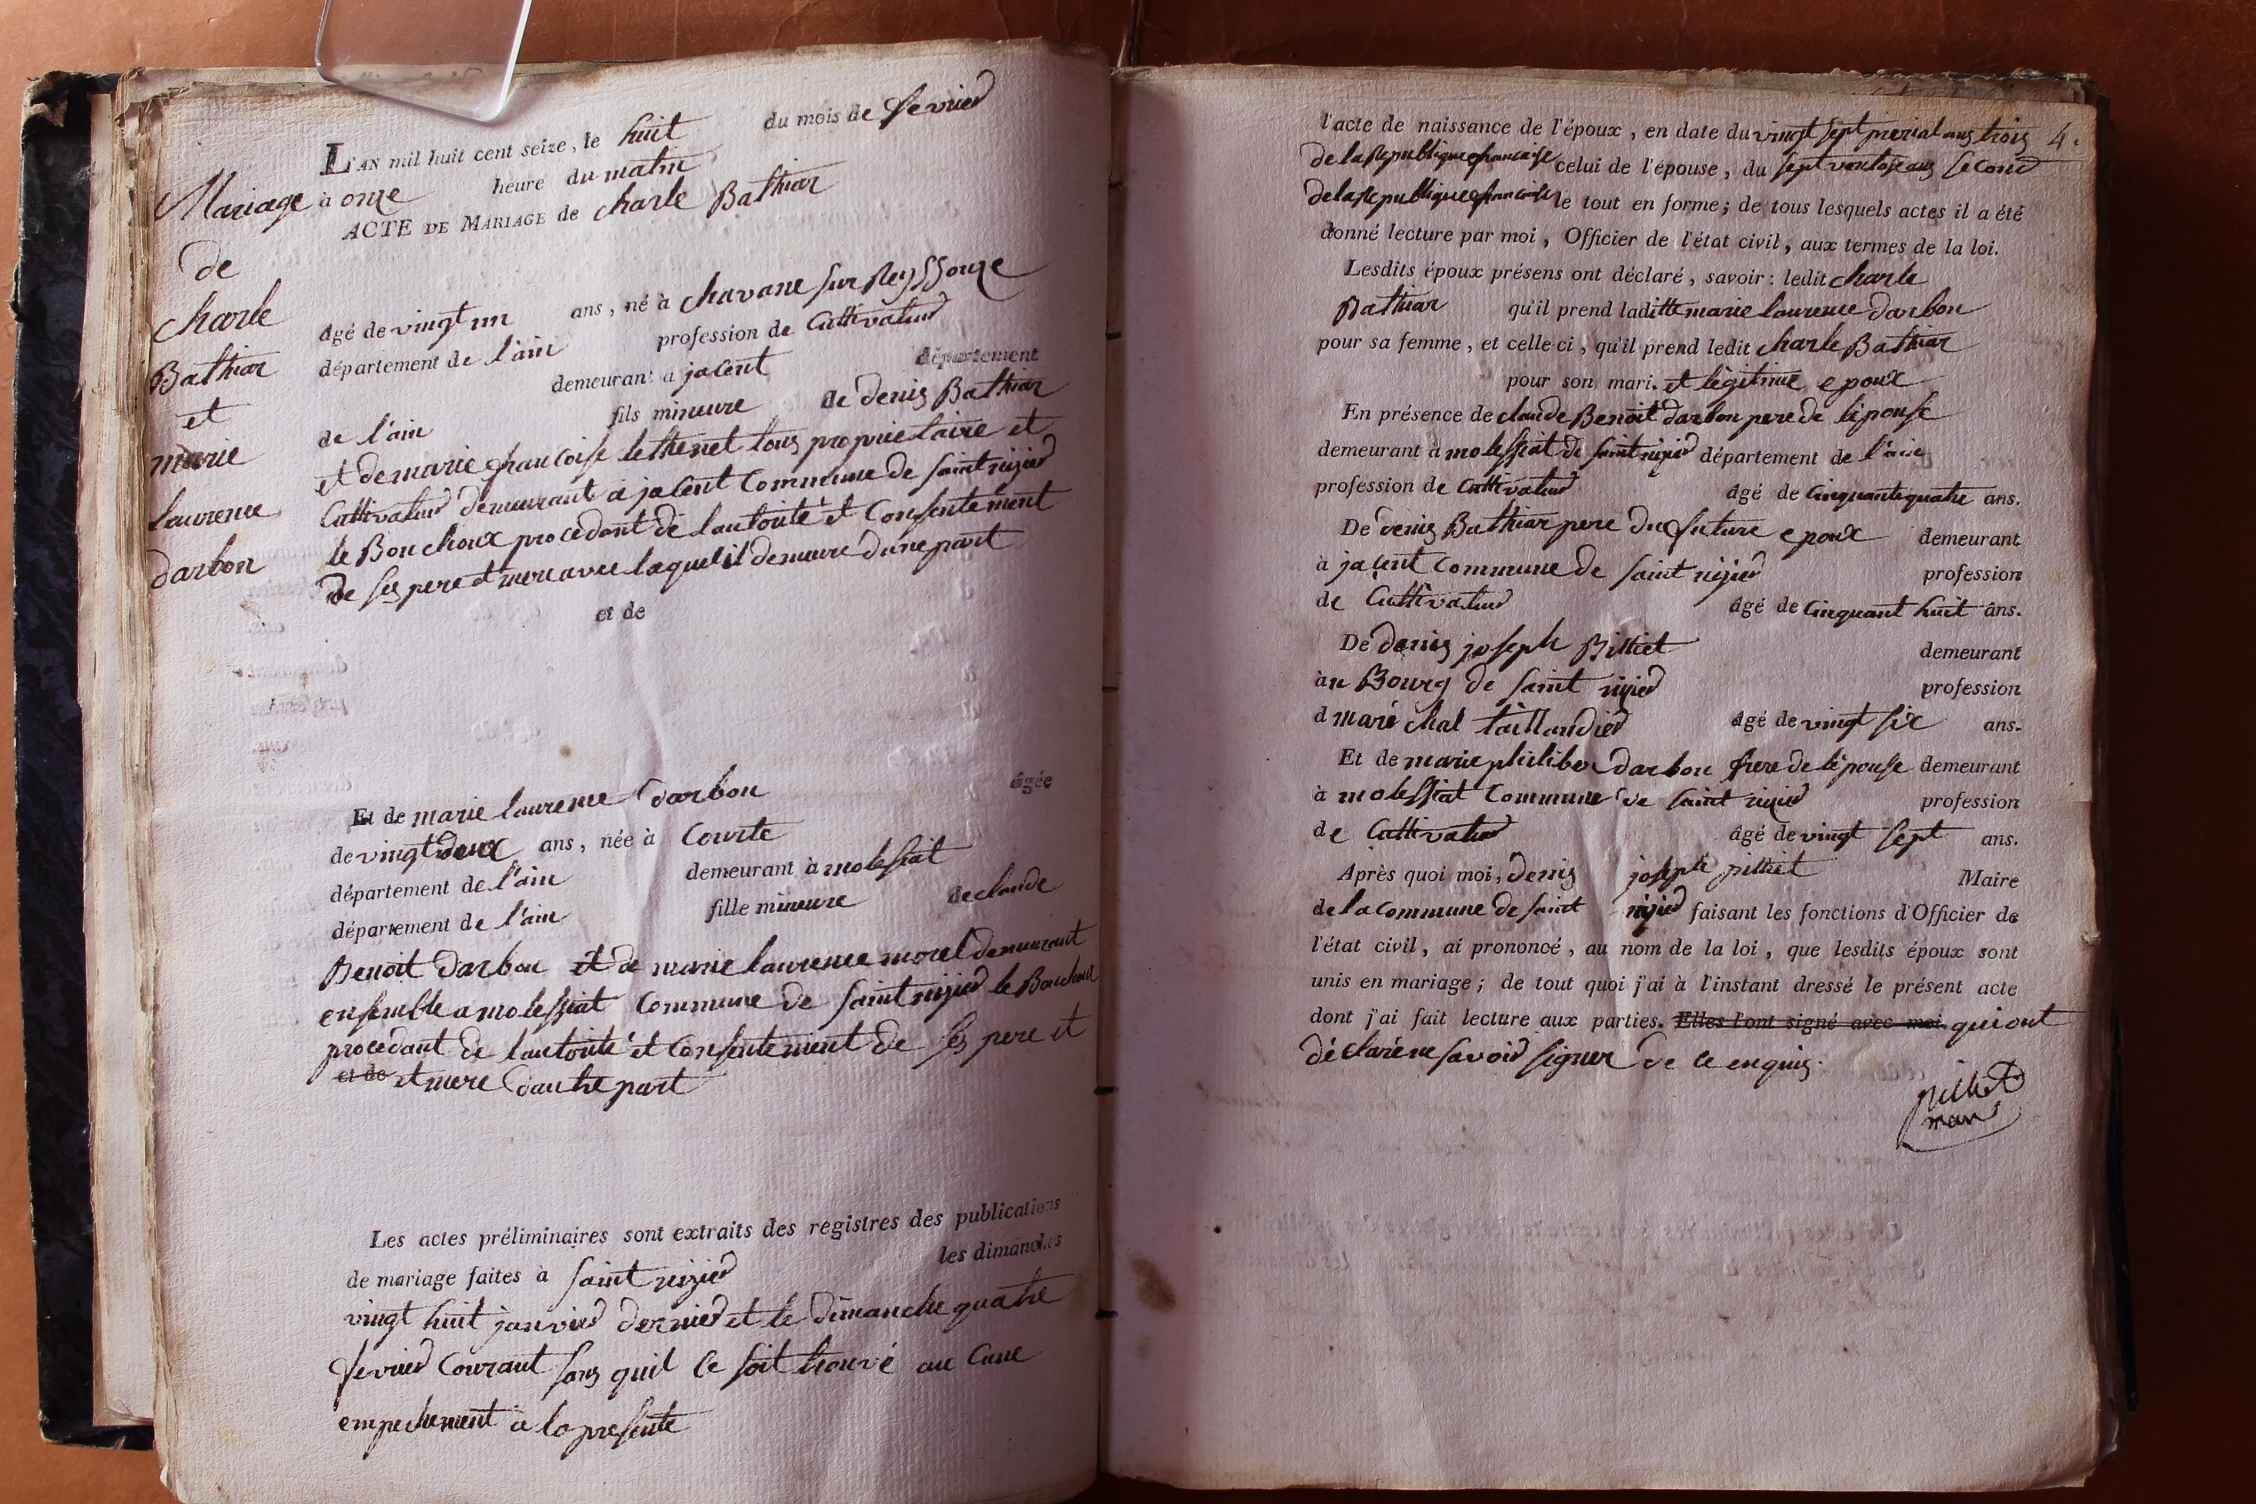 L'AN mil huit cent seize, le huit du mois de fevrier
à onze heure du matin
ACTE DE MARIAGE de charle Bathiar
Mariage
de
charle
Bathiar
et
marie
laurence
darbon
âgé de vingt un ans, né à chavane sur Reyssouze
département de l'ain profession de Cultivateur
demeurant a jacent département
de l'ain fils mineure de denis Bathiar
et de marie francoise lethenet tous proprietaire et
Cultivateur demeurant a jacent Commune de saint nizier
le Bouchoux procedant de lautorité et Consentement
de ses pere et mere avec laquel il demeure dune part
et de
Et de marie laurence darbon âgée
de vingt deux ans, née à Courte
département de l'ain demeurant à molessiat
département de l'ain fille mineure de claude
Benoit darbon et de marie laurence morel demeurant
ensemble a molessiat Commune de saint nizier le Bouchoux
procedant de lautorité et Consentement de ses pere et
et de et mere dautre part
Les actes préliminaires sont extraits des registres des publications
de mariage faites à saint nizier les dimanches
vingt huit janvier dernier et le dimanche quatre
fevrier Courant sans quil ce soit trouvé au Cune
empechement a la presente
4.
l'acte de naissance de l'époux, en date du vingt sept prerial ans trois
de la Republique francaise celui de l'épouse, du sept ventose ans second
de la Republique francaise le tout en forme; de tous lesquels actes il a été
donné lecture par moi, Officier de l'état civil, aux termes de la loi.
Lesdits époux présens ont déclaré, savoir: ledit charle
Bathiar qu'il prend laditte marie laurence darbon
pour sa femme, et celle ci, qu'il prend ledit charle Bathiar
pour son mari. et légitime epoux
En présence de claude Benoit darbon pere de lépouse
demeurant à molessiat de saint nizier département de l'ain
profession de Cultivateur âgé de Cinquante quatre ans.
De denis Bathiar pere du future epoux demeurant
à jacent Commune de saint nizier profession
de Cultivateur âgé de Cinquant huit ans.
De denis joseph Billiet demeurant
àu Bourg de saint nizier profession
d maréchal taillandier âgé de vingt six ans.
Et de marie philiber darbon frere de lépouse demeurant
à molessiat Commune de saint nizier profession
de Cultivateur âgé de vingt sept ans.
Après quoi moi, denis joseph pilliet Maire
de la commune de saint nizier faisant les fonctions d'Officier de
l'état civil, ai prononcé, au nom de la loi, que lesdits époux sont
unis en mariage; de tout quoi j'ai à l'instant dressé le présent acte
dont j'ai fait lecture aux parties. Elles l'ont signé avec moi. qui ont
déclaré ne savoir signer de ce enquis.
pilliet